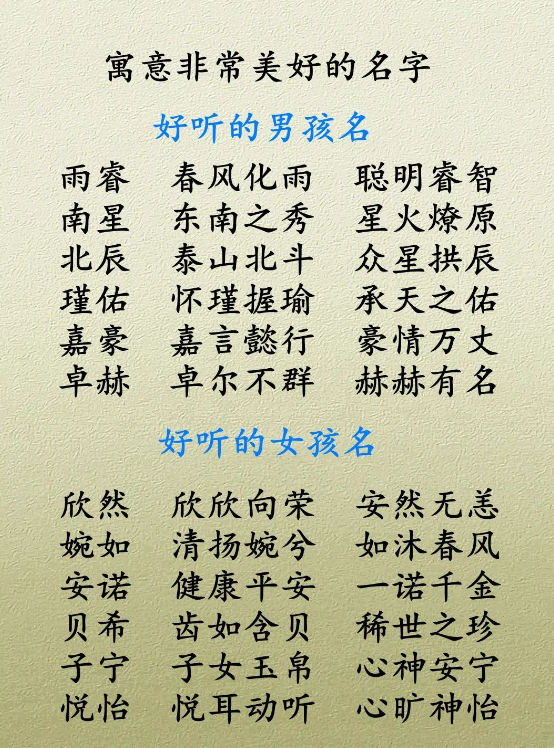 寓意非常美好的名字
好听的男孩名
雨睿 春风化雨 聪明睿智
南星 东南之秀 星火燎原
北辰 泰山北斗 众星拱辰
瑾佑 怀瑾握瑜 承天之佑
嘉豪 嘉言懿行 豪情万丈
卓赫 卓尔不群 赫赫有名
好听的女孩名
欣然 欣欣向荣 安然无恙
婉如 清扬婉兮 如沐春风
安诺 健康平安 一诺千金
贝希 齿如含贝 稀世之珍
子宁 子女玉帛 心神安宁
悦怡 悦耳动听 心旷神怡